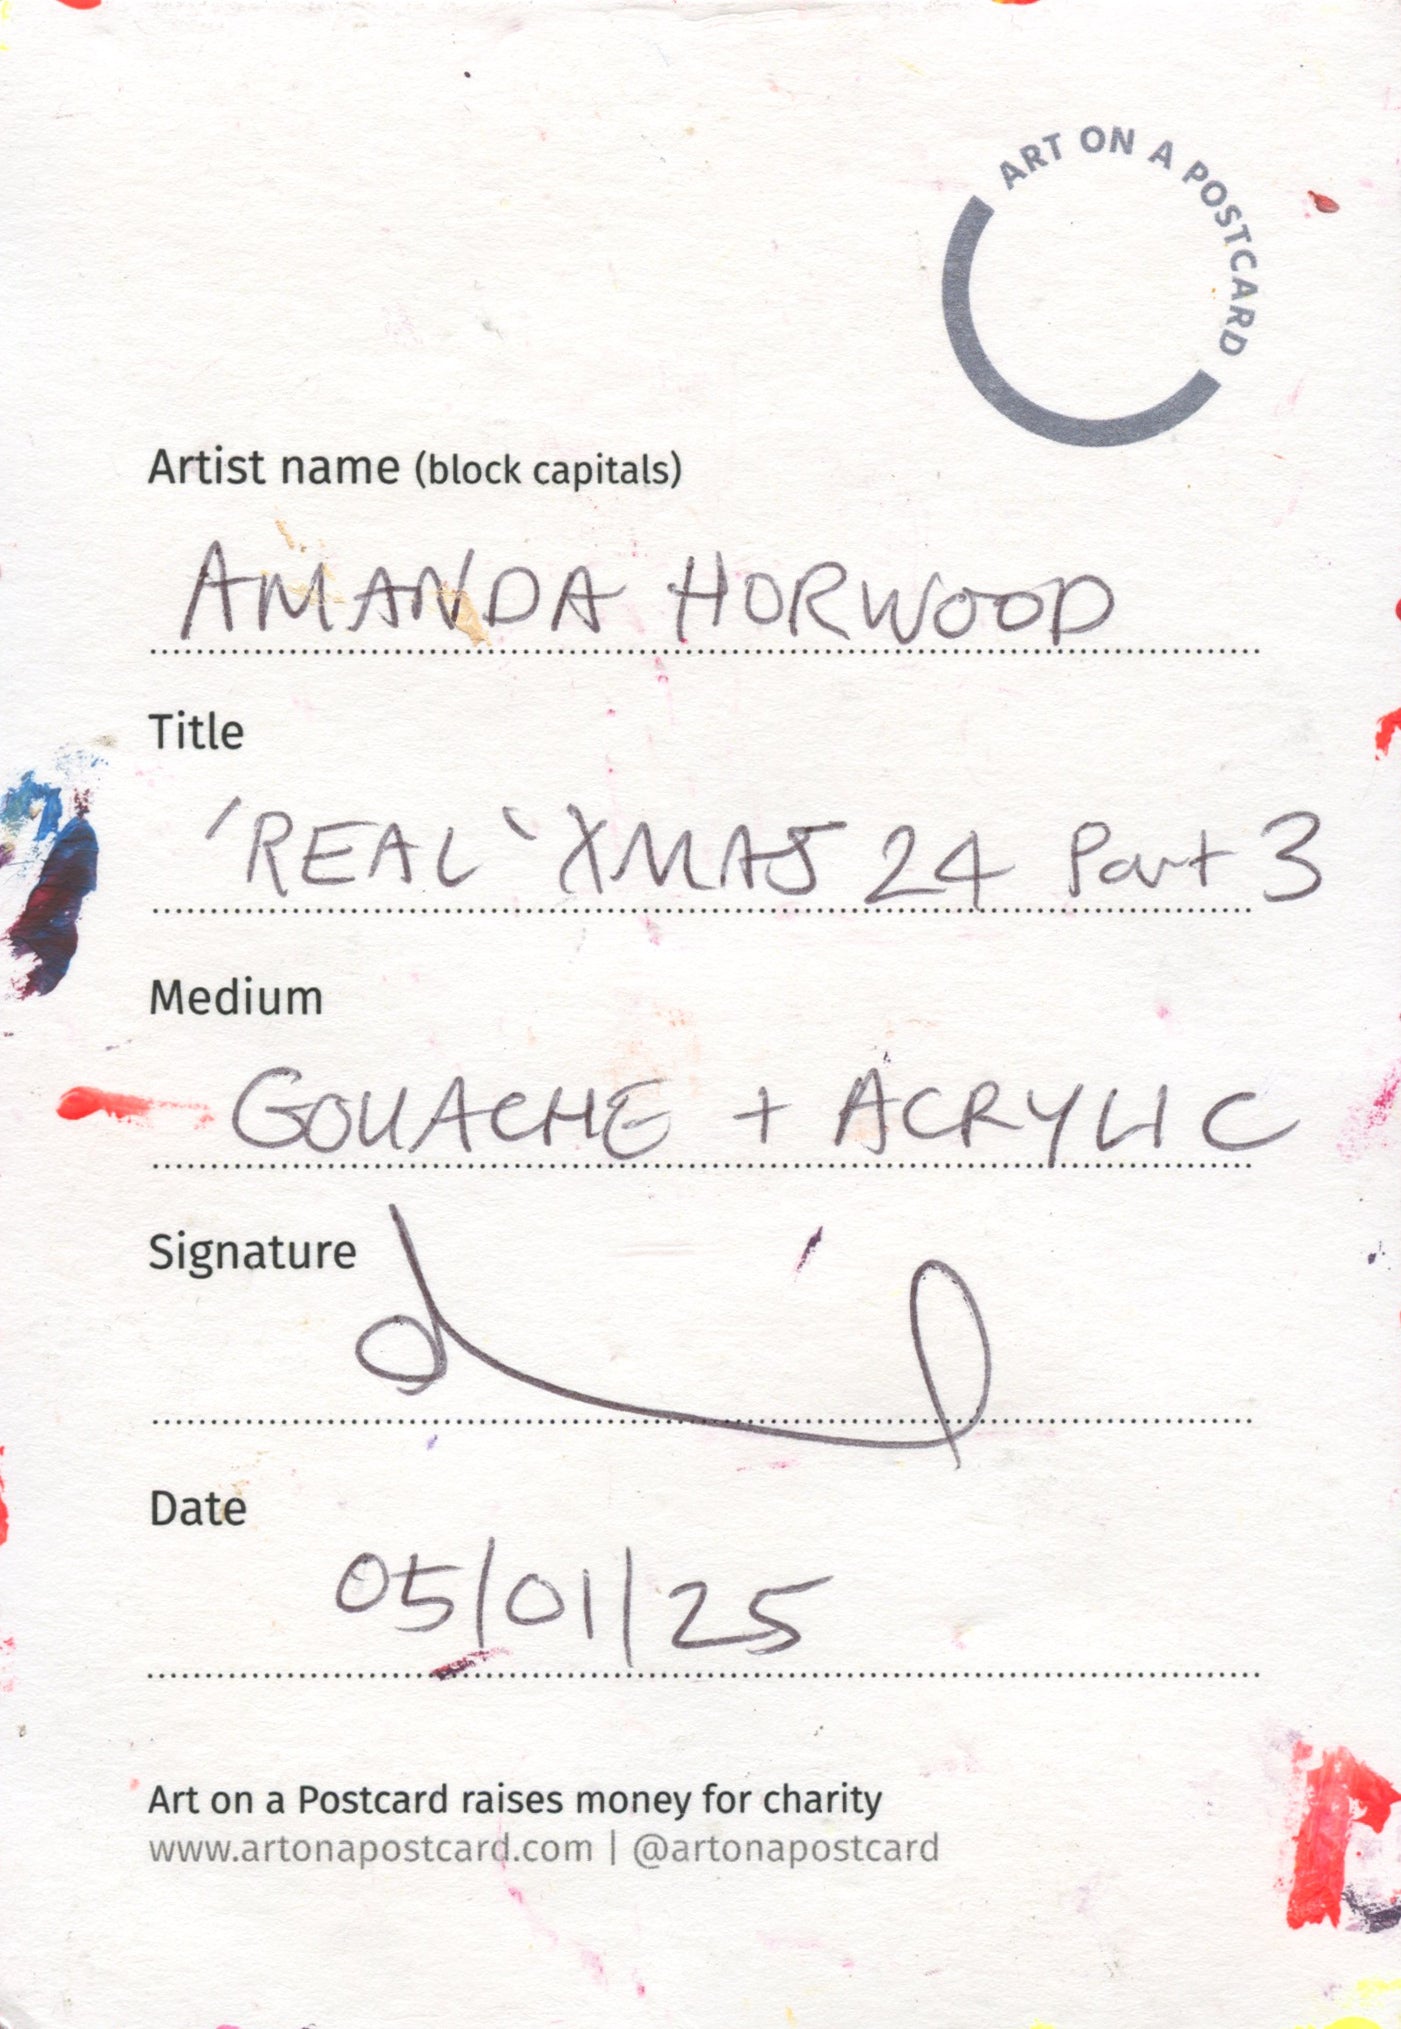 ART ON A POSTCARD
Artist name (block capitals)
AMANDA HORWOOD
Title
'REAL' XMAS 24 Part 3
Medium
GOUACHE + ACRYLIC
Signature
Date
05/01/25
Art on a Postcard raises money for charity
www.artonapostcard.com | @artonapostcard